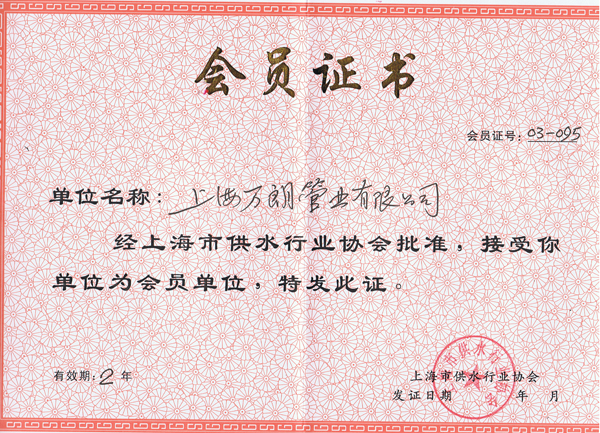 会员证书
会员证号：03-095
单位名称：上海万朗管业有限公司
经上海市供水行业协会批准，接受你
单位为会员单位，特发此证。
有效期：2 年
上海市供水行业协会
发证日期 年 月